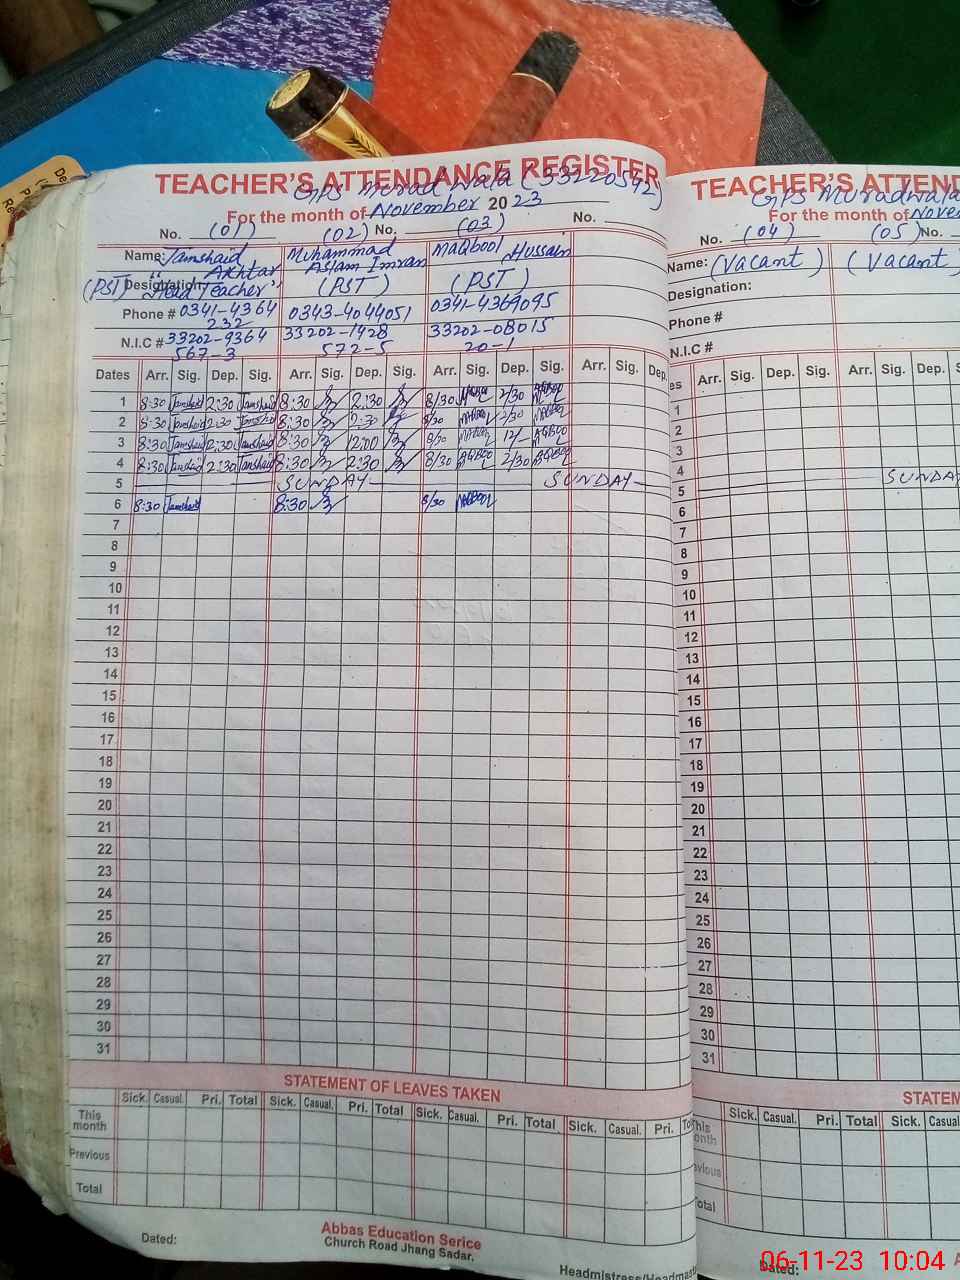 TEACHER'S ATTENDANCE REGISTER
GPS Muradwala (33220592)
For the month of November 2023
No. (01) (02) No. (03) No.
Name: Jamshaid Akhtar Muhammad Aslam Imran Maqbool Hussain
(PST) Designation: "Head Teacher" (PST) (PST)
Phone # 0341-4364232 0343-4044051 0341-4369095
N.I.C # 33202-9364567-3 33202-1428572-5 33202-0801520-1
Dates Arr. Sig. Dep. Sig. Arr. Sig. Dep. Sig. Arr. Sig. Dep. Sig. Arr. Sig. Dep.
1 8:30 Jamshaid 2:30 Jamshaid 8:30 2:30 8/30 2/30
2 8:30 Jamshaid 2:30 Jamshaid 8:30 2:30 8/30 2/30
3 8:30 Jamshaid 12:30 Jamshaid 8:30 12:00 8/30 12/-
4 8:30 Jamshaid 2:30 Jamshaid 8:30 2:30 8/30 2/30
5 SUNDAY SUNDAY
6 8:30 Jamshaid 8:30 8/30
7
8
9
10
11
12
13
14
15
16
17
18
19
20
21
22
23
24
25
26
27
28
29
30
31
STATEMENT OF LEAVES TAKEN
Sick. Casual. Pri. Total Sick. Casual. Pri. Total Sick. Casual. Pri. Total Sick. Casual. Pri.
This month
Previous
Total
Dated:
Abbas Education Serice
Church Road Jhang Sadar.
TEACHER'S ATTEND
GPS Muradwala
For the month of Nove
No. (04) (05) No.
Name: (Vacant) (Vacant)
Designation:
Phone #
N.I.C #
Arr. Sig. Dep. Sig. Arr. Sig. Dep.
1
2
3
4
5 SUNDAY
6
7
8
9
10
11
12
13
14
15
16
17
18
19
20
21
22
23
24
25
26
27
28
29
30
31
STATEM
Sick. Casual. Pri. Total Sick. Casual
Dated:
06-11-23 10:04